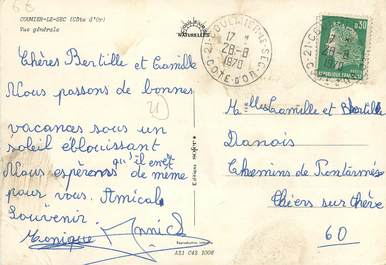 CORMIER-LE-SEC (Côte d'Or)
Vue générale
Chères Bertille et Camille
Nous passons de bonnes
vacances sous un
soleil éblouissant
Nous espérons qu'il en est de même
pour vous. Amical
Souvenir.
Monique Annick
21
NATURELLES
Reproduction interdite
A21 C42 1006
17 H
28-8
1970
COTE D'OR
0,30
REPUBLIQUE FRANÇAISE
Melles Camille et Bertille
Danois
Chemins de
Thiers sur Thève
60